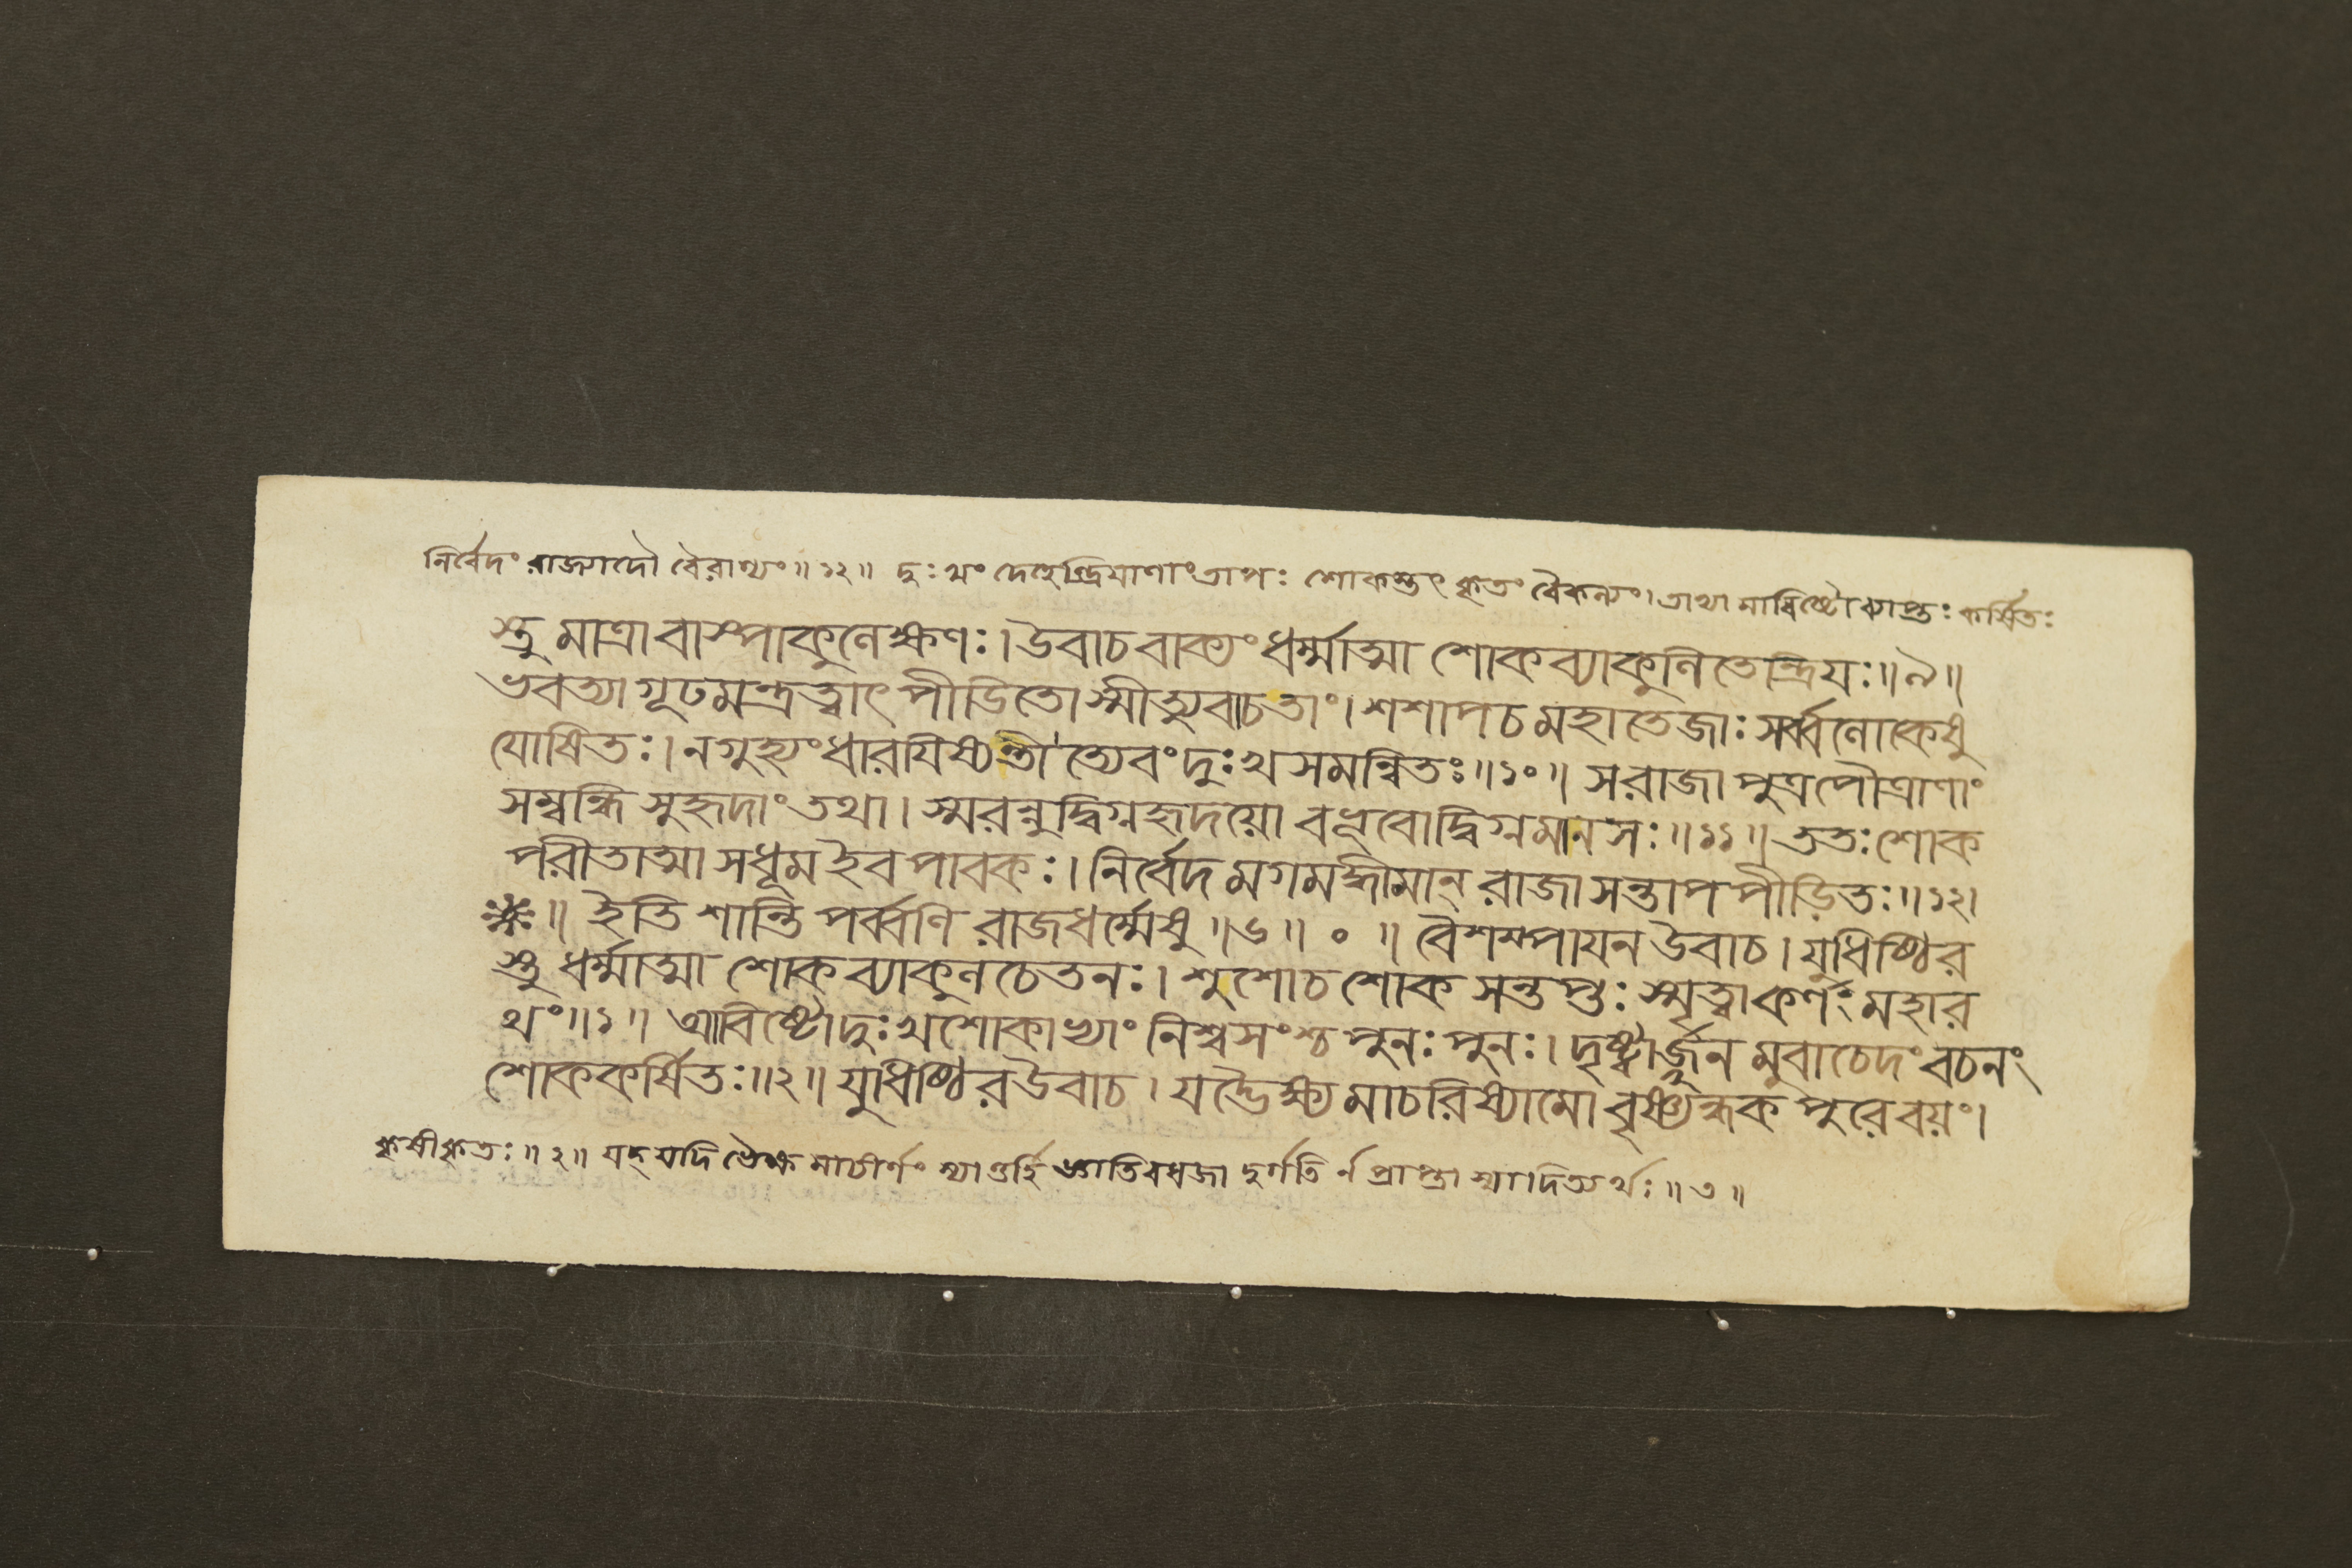 নির্বেদং রাজ্যাদৌ বৈরাগ্যং॥১২॥ দুঃখং দেহেন্দ্রিয়াণাং তাপঃ শোকস্তৎকৃতং বৈকল্যং। তাভ্যামাবিষ্টো ব্যাপ্তঃ কর্ষিতঃ
স্তু মাত্রা বাস্পাকুলেক্ষণঃ। উবাচ বাক্যং ধর্ম্মাত্মা শোকব্যাকুলিতেন্দ্রিয়ঃ॥৯॥
ভবত্যা গূঢমন্ত্রত্বাৎ পীডিতোস্মীত্যুবাচ তাং। শশাপ চ মহাতেজাঃ সর্ব্বলোকেষু
যোষিতঃ। ন গুহ্যং ধারযিষ্যন্তীত্যেবং দুঃখসমন্বিতঃ॥১০॥ স রাজা পুত্রপৌত্রাণাং
সম্বন্ধি সুহৃদাং তথা। স্মরন্নুদ্বিগ্নহৃদয়ো বভূবোদ্বিগ্নমানসঃ॥১১॥ ততঃ শোক
পরীতাত্মা সধূম ইব পাবকঃ। নির্বেদমগমদ্ধীমান্ রাজা সন্তাপপীড়িতঃ॥১২।
॥ ইতি শান্তিপর্ব্বণি রাজধর্ম্মেষু॥৬॥ ॰ ॥ বৈশম্পাযন উবাচ। যুধিষ্ঠির
স্তু ধর্ম্মাত্মা শোকব্যাকুলচেতনঃ। শুশোচ শোকসন্তপ্তঃ স্মৃত্বা কর্ণং মহার
থং॥১॥ আবিষ্টো দুঃখশোকাভ্যাং নিশ্বসংশ্চ পুনঃ পুনঃ। দৃষ্ট্বার্জ্জুনমুবাচেদং বচনং
শোককর্ষিতঃ॥২॥ যুধিষ্ঠির উবাচ। যদ্ভৈক্ষ্যমাচরিষ্যামো বৃষ্ণ্যন্ধকপুরে বয়ং।
কৃষীকৃতঃ॥২॥ যদ্ যদি ভৈক্ষমাচীর্ণং স্যাত্তর্হি জ্ঞাতিবধজা দুর্গতির্ন প্রাপ্তা স্যাদিত্যর্থঃ॥৩॥